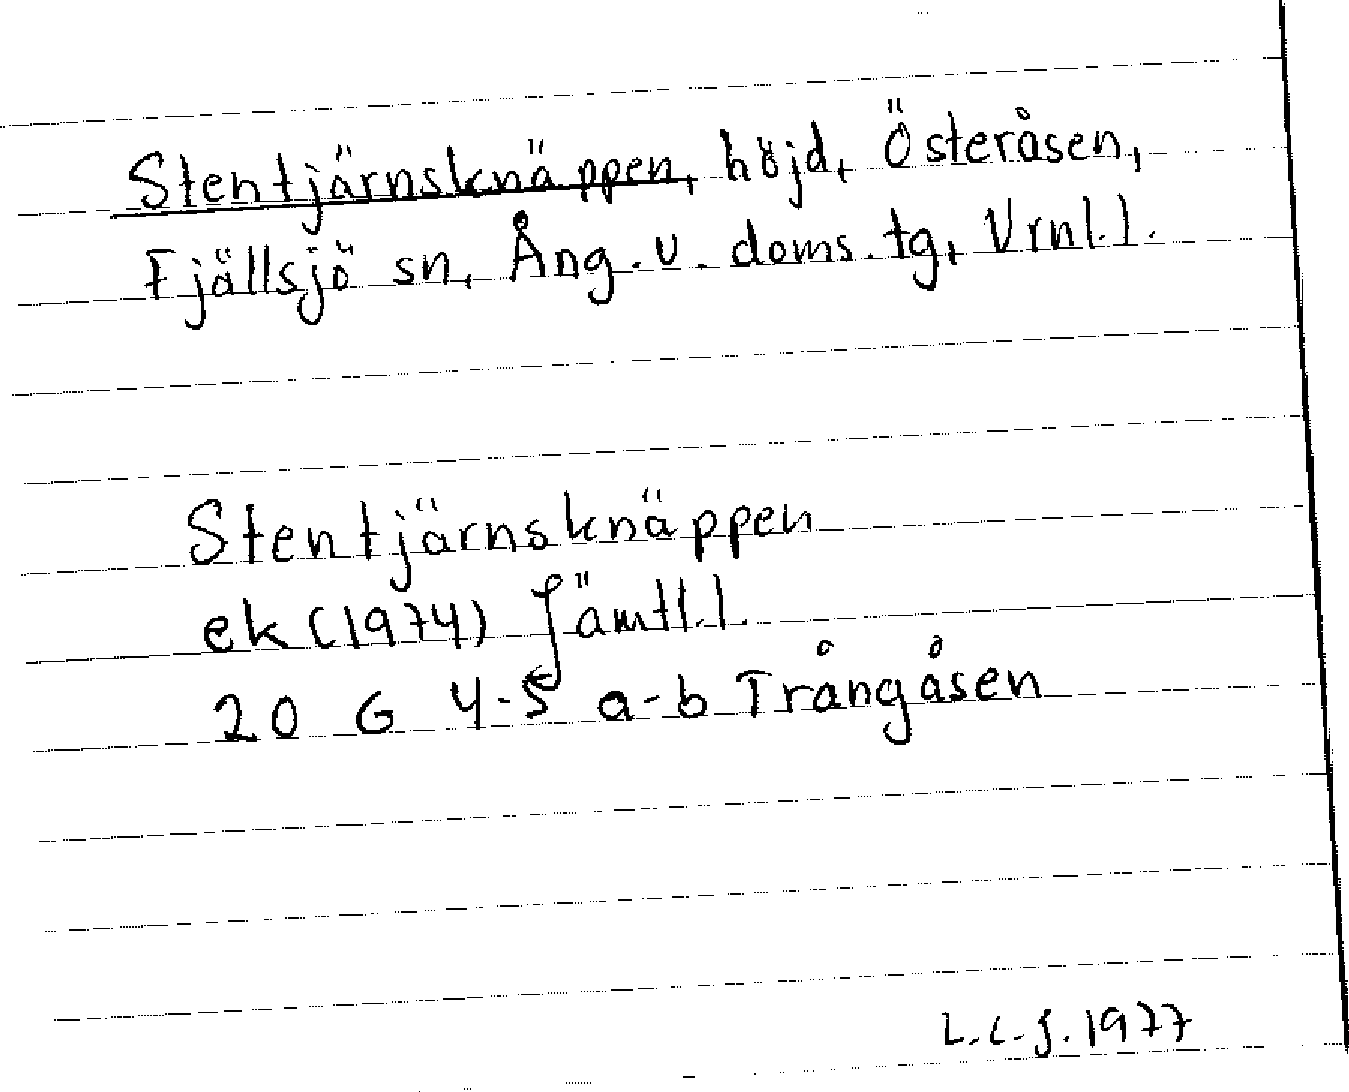 Stentjärnsknäppen, höjd, Österåsen,
Fjällsjö sn, Ång. v. doms. tg, Vrnl. l.
Stentjärnsknäppen
ek (1974) Jämtl. l.
20 G 4-5 a-b Trångåsen
L.C.J. 1977